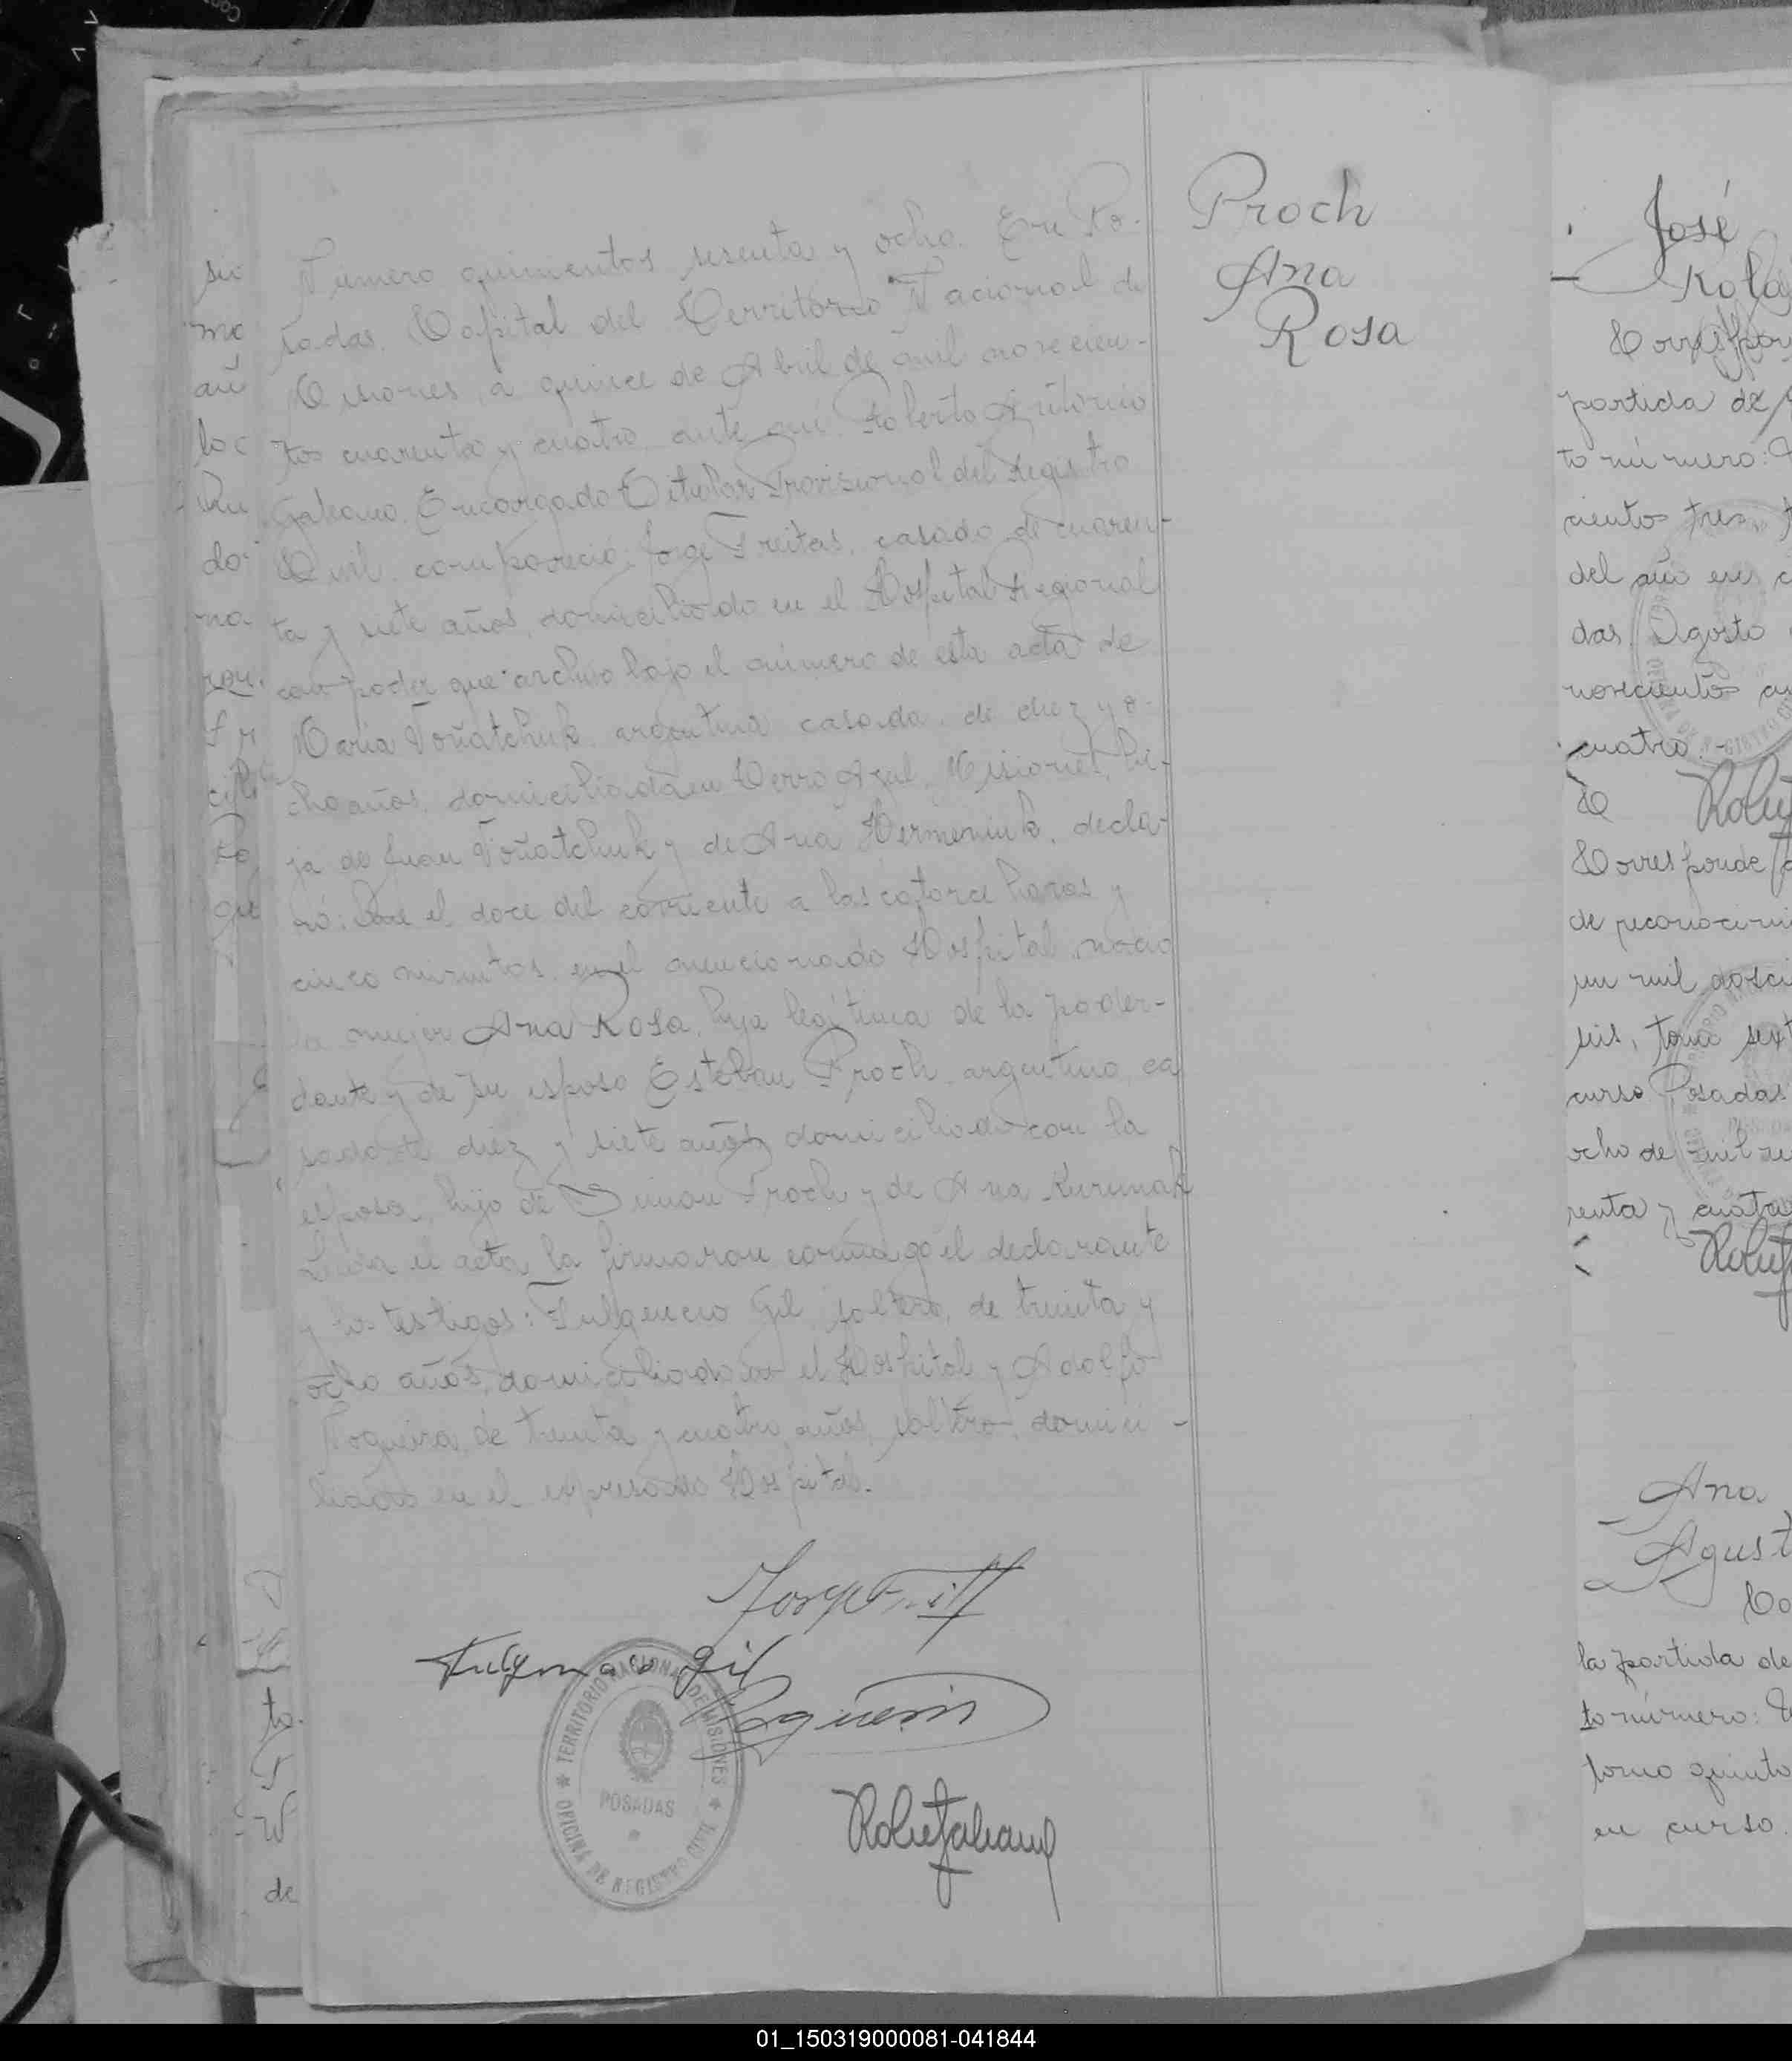 Numero quinientos sesenta y ocho. En Po-
sadas, Capital del Territorio Nacional de
Misiones, a quince de Abril de mil novecien-
tos cuarenta y cuatro, ante mi: Roberto Antonio
Galeano, Encargado Titular Provisional del Registro
Civil, compareció: Jorge Freitas, casado, de cuaren-
ta y siete años, domiciliado en el Hospital Regional
con poder que archivo bajo el número de esta acta de
Maria Toñatchuk, argentina, casada, de diez y o-
cho años, domiciliada en Cerro Azul, Misiones, hi-
ja de Juan Toñatchuk y de Ana Hermeniuk, decla-
ró: Que el doce del corriente a las catorce horas y
cinco minutos, en el mencionado Hospital, nacio
la mujer Ana Rosa, hija legitima de la poder-
dante y de su esposo Esteban Proch, argentino, ca
sado, de diez y siete años, domiciliado con la
esposa, hijo de Simon Proch y de Ana
Leida el acta la firmaron conmigo el declarante
y los testigos: Fulgencio Gil, soltero, de treinta y
ocho años, domiciliado en el Hospital y Adolfo
Nogueira, de treinta y cuatro años, soltero, domici-
liado en el expresado Hospital.
Fulgencio Gil
TERRITORIO NACIONAL DE MISIONES
POSADAS
OFICINA DE REGISTRO CIVIL
Proch
Ana
Rosa
su
mo
añ
loc
do
na
cili
que
to
de
José
partida de
to número:
ciento tres
del año en c
das, Agosto
novecientos cu
cuatro.-
Corresponde
de reconocimi
un mil dosci
seis, tomo sext
curso Posadas
ocho de mil
renta y cuatro
Ana
Agust
Co
la partida de
to número:
tomo quinto
en curso.
01_150319000081-041844